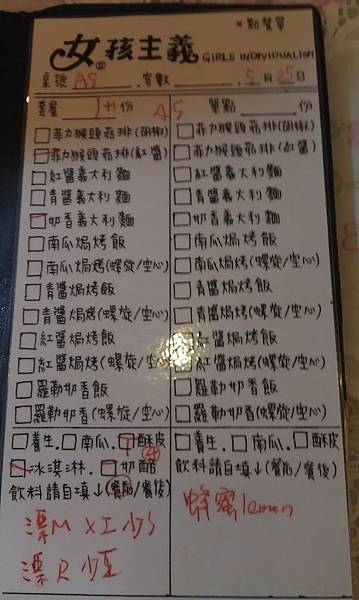 *點餐單
女孩主義 GIRLS INDIVIDUALISM
桌號 A5 客數 5月25日
套餐 1+1份 A5 單點 份
□菲力猴頭菇排(胡椒) □菲力猴頭菇排(胡椒)
□菲力猴頭菇排(紅醬) □菲力猴頭菇排(紅醬)
□紅醬義大利麵 □紅醬義大利麵
□青醬義大利麵 □青醬義大利麵
□奶香義大利麵 □奶香義大利麵
□南瓜焗烤飯 □南瓜焗烤飯
□南瓜焗烤(螺旋/空心) □南瓜焗烤(螺旋/空心)
□青醬焗烤飯 □青醬焗烤飯
□青醬焗烤(螺旋/空心) □青醬焗烤(螺旋/空心)
□紅醬焗烤飯 □紅醬焗烤飯
□紅醬焗烤(螺旋/空心) □紅醬焗烤(螺旋/空心)
□羅勒奶香飯 □羅勒奶香飯
□羅勒奶香(螺旋/空心) □羅勒奶香(螺旋/空心)
□養生.□南瓜.□酥皮 □養生.□南瓜.□酥皮
□冰淇淋.□奶酪 飲料請自填↓(餐前/餐後)
飲料請自填↓(餐前/餐後) 蜂蜜lemon
漂M XI 少S
漂R